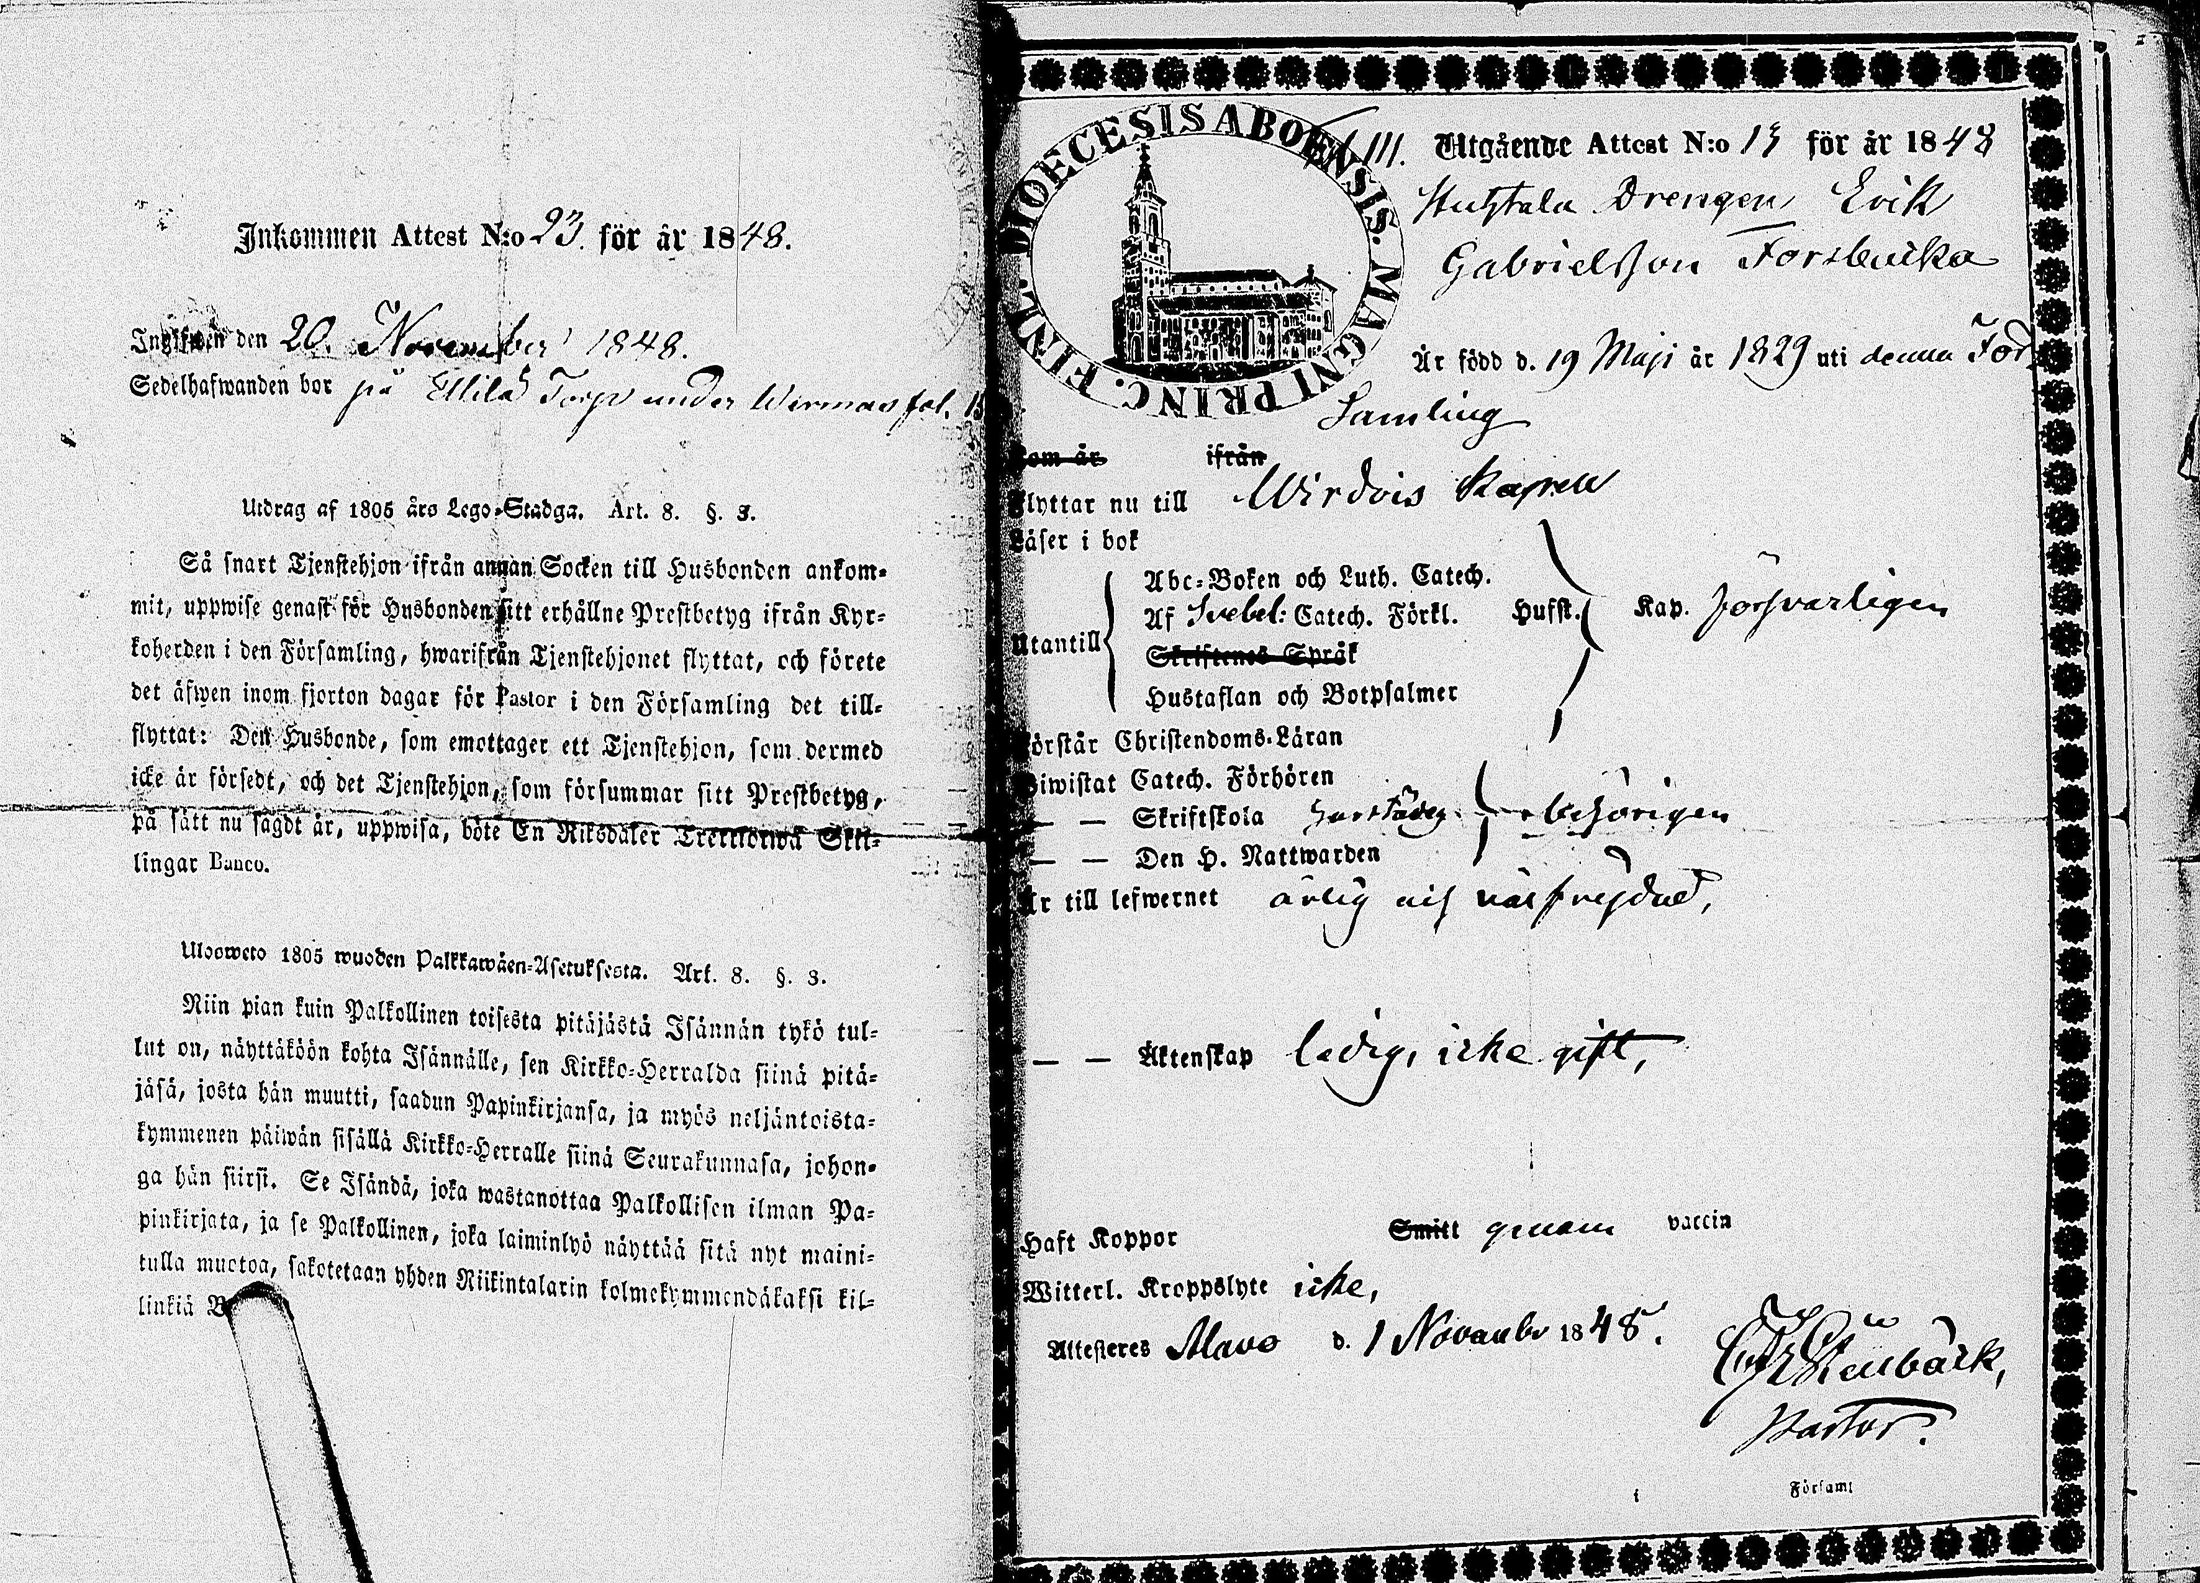 Inkommen Attest N:o 23. för år 1848.
Ingifwen den 20. November 1848.
Sedelhafwanden bor på Ellilä Torp under Wirmas fol.
Utdrag af 1805 års Lego-Stadga. Art. 8. §. 3.
Så snart Tjenstehjon ifrån annan Socken till Husbonden ankom-
mit, uppwise genast för Husbonden sitt erhållne Prestbetyg ifrån Kyr-
koherden i den Församling, hwarifrån Tjenstehjonet flyttat, och förete
det äfwen inom fjorton dagar för Pastor i den Församling det till-
flyttat: Den Husbonde, som emottager ett Tjenstehjon, som dermed
icke är försedt, och det Tjenstehjon, som försummar sitt Prestbetyg,
på sätt nu sagdt är, uppwisa, böte En Riksdaler Trettiotwå Skil-
lingar Banco.
Uloosweto 1805 wuoden Palkkawäen-Asetuksesta. Art. 8. §. 3.
Niin pian kuin Palkollinen toisesta pitäjästä Isännän tykö tul-
lut on, näyttäköön kohta Isännälle, sen Kirkko-Herralda siinä pitä-
jäsä, josta hän muutti, saadun Papinkirjansa, ja myös neljäntoista-
kymmenen päiwän sisällä Kirkko-Herralle siinä Seurakunnasa, johon-
ga hän siirsi. Se Isändä, joka wastanottaa Palkollisen ilman Pa-
pinkirjata, ja se Palkollinen, joka laiminlyö näyttää sitä nyt maini-
tulla muotoa, sakotetaan yhden Riikintalarin kolmekymmendäkaksi kil-
linkiä B
DIOECESIS ABOENSIS. MAGNI PRINC. FINL.
III. Utgående Attest N:o 13 för år 1848
Drengen Erik
Gabrielsson Forsbacka
Är född d. 19 Maji år 1829 uti denna För
Samling
Kom år ifrån
Flyttar nu till Wirdois Kapell
Läser i bok
Abc-Boken och Luth. Catech.
Utantill Af Svebel: Catech. Förkl. Husst. Kap. försvarligen
Skriftenes Språk
Hustaflan och Botpsalmer
Förstår Christendoms-Läran
Biwistat Catech. Förhören
— — Skriftskola behörigen
— — Den H. Nattwarden
Är till lefwernet ärlig och välfrejdad,
— — Äktenskap ledig, icke gift,
Haft Koppor Smitt genom vaccin
Witterl. Kroppslyte icke,
Attesteres Alavo d. 1 November 1848.
Stenbäck,
Pastor.
i Församl